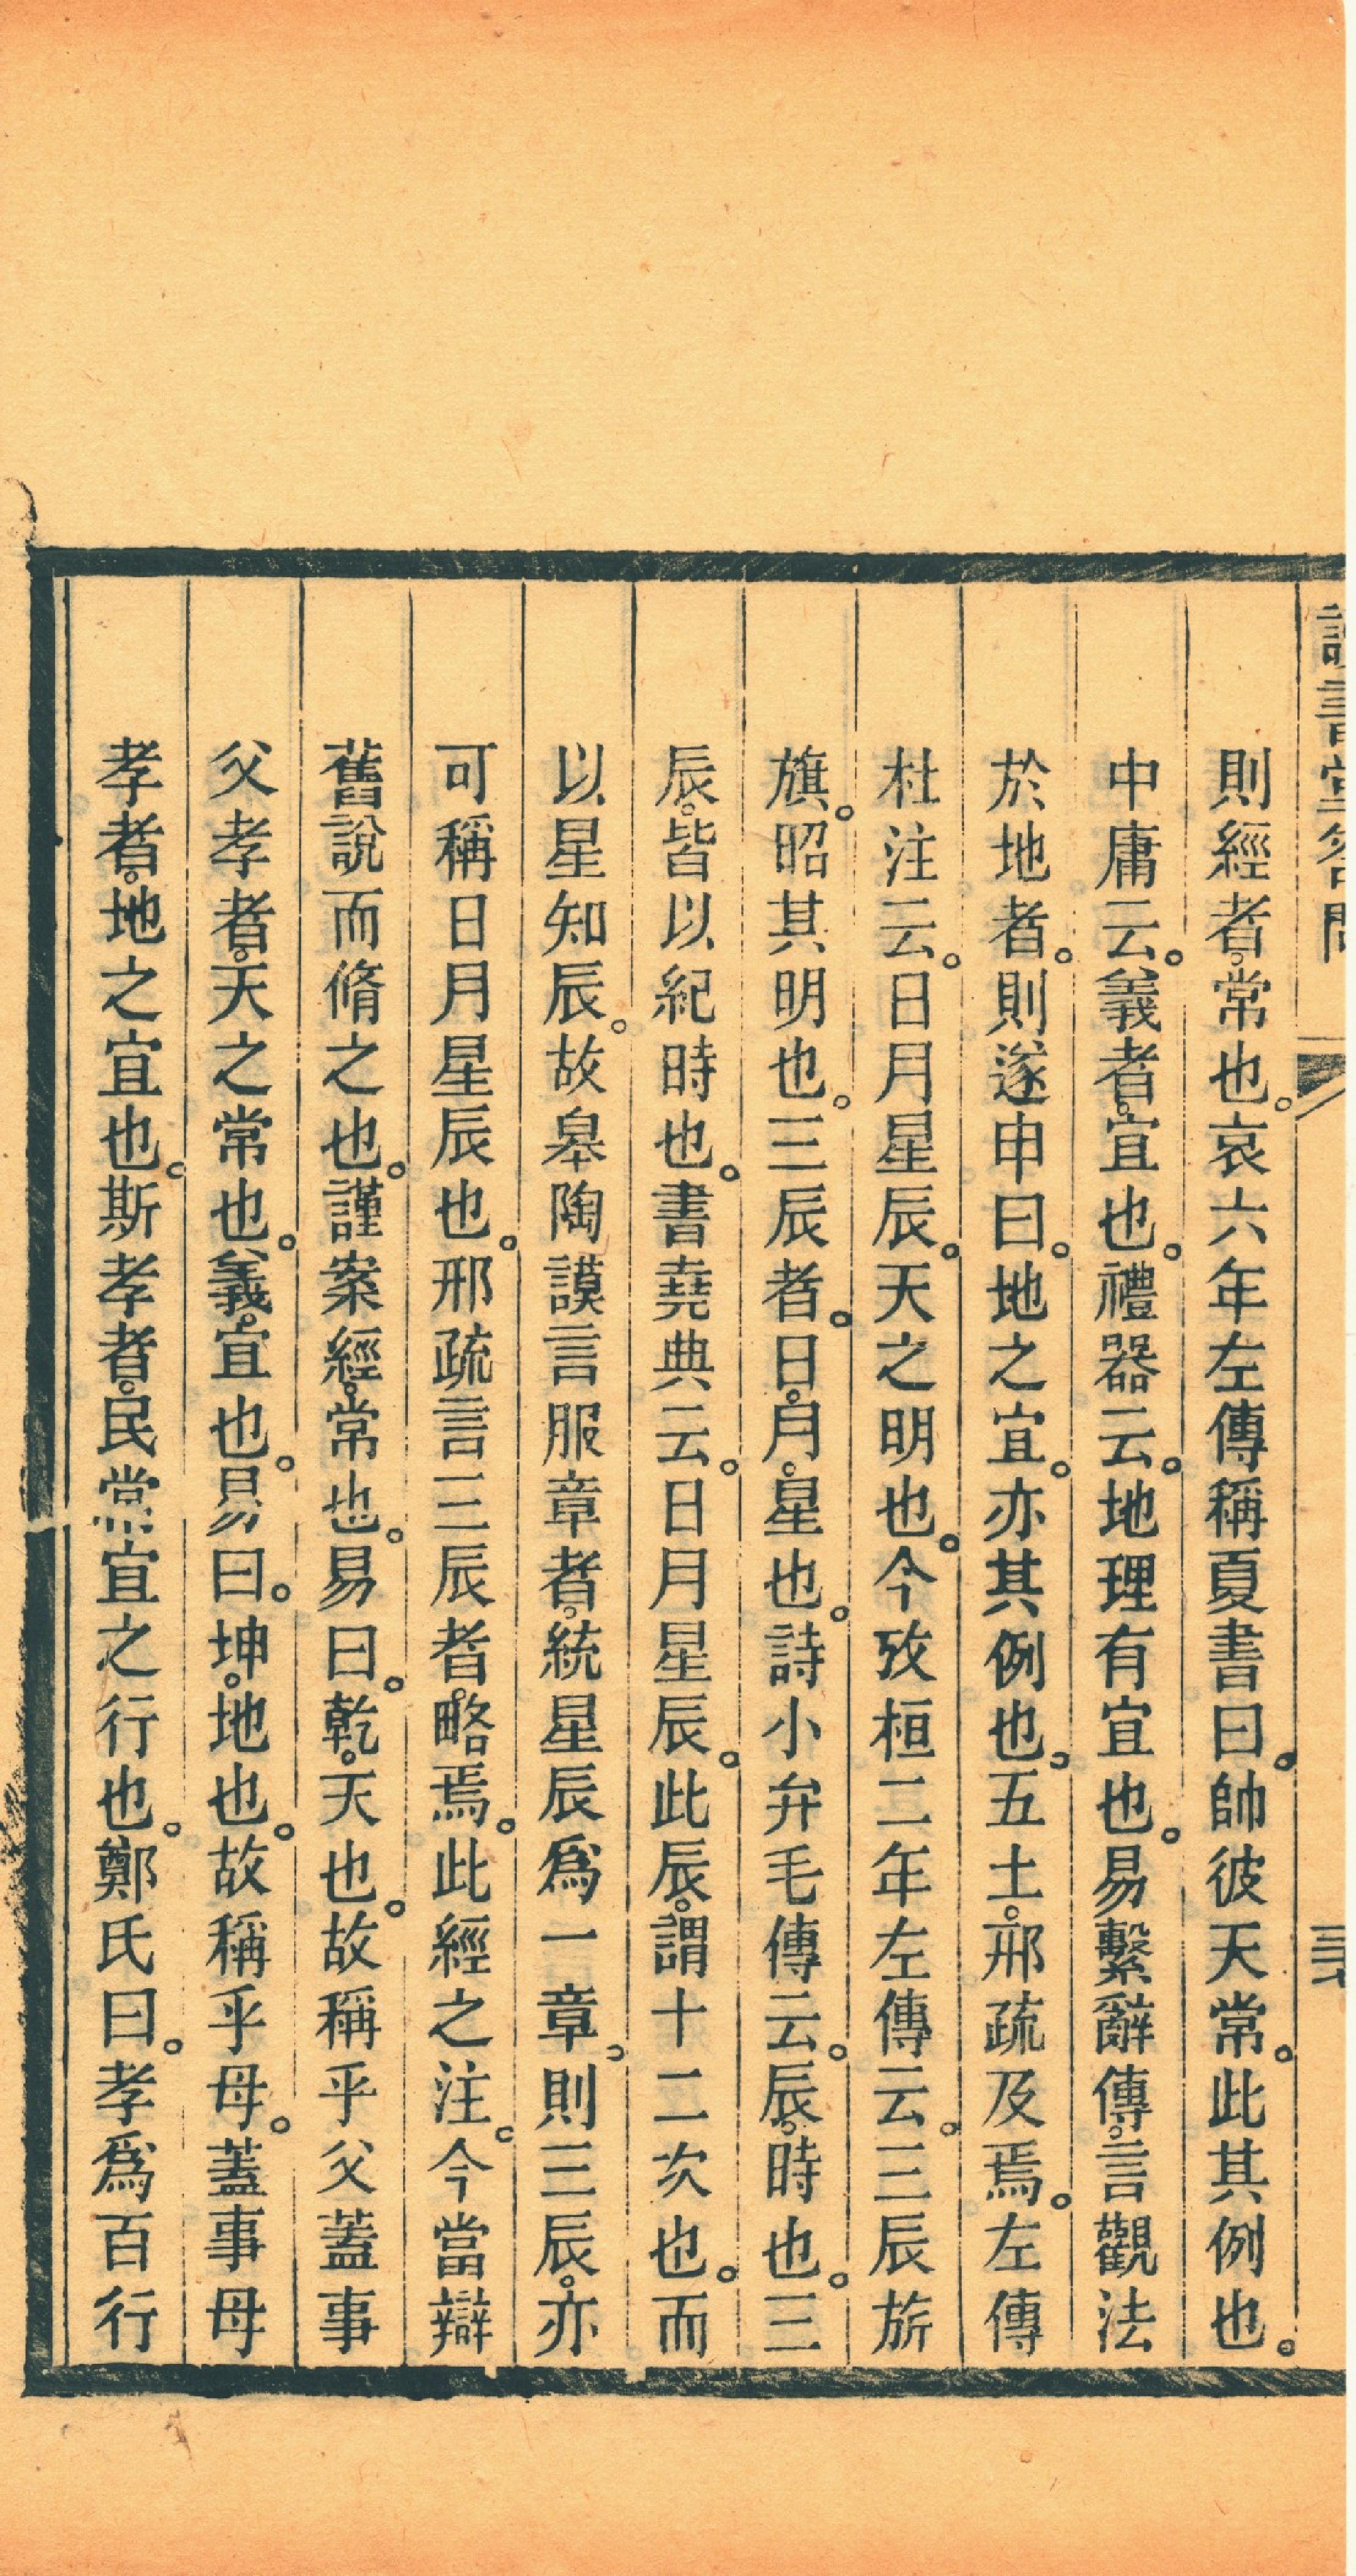 讀書堂答問
則經者。常也。哀六年左傳稱夏書曰。帥彼天常。此其例也。
中庸云。義者。宜也。禮器云。地理有宜也。易繫辭傳。言觀法
於地者。則遂申曰。地之宜。亦其例也。五土。邢疏及焉。左傳
杜注云。日月星辰。天之明也。今攷桓二年左傳云。三辰旂
旗。昭其明也。三辰者。日。月。星也。詩小弁毛傳云。辰。時也。三
辰。皆以紀時也。書堯典云。日月星辰。此辰。謂十二次也。而
以星知辰。故皋陶謨言服章者。統星辰爲一章。則三辰。亦
可稱日月星辰也。邢疏言三辰者。略焉。此經之注。今當辯
舊說而脩之也。謹案經。常也。易曰。乾。天也。故稱乎父蓋事
父孝者。天之常也。義。宜也。易曰。坤。地也。故稱乎母。蓋事母
孝者。地之宜也。斯孝者。民常宜之行也。鄭氏曰。孝爲百行